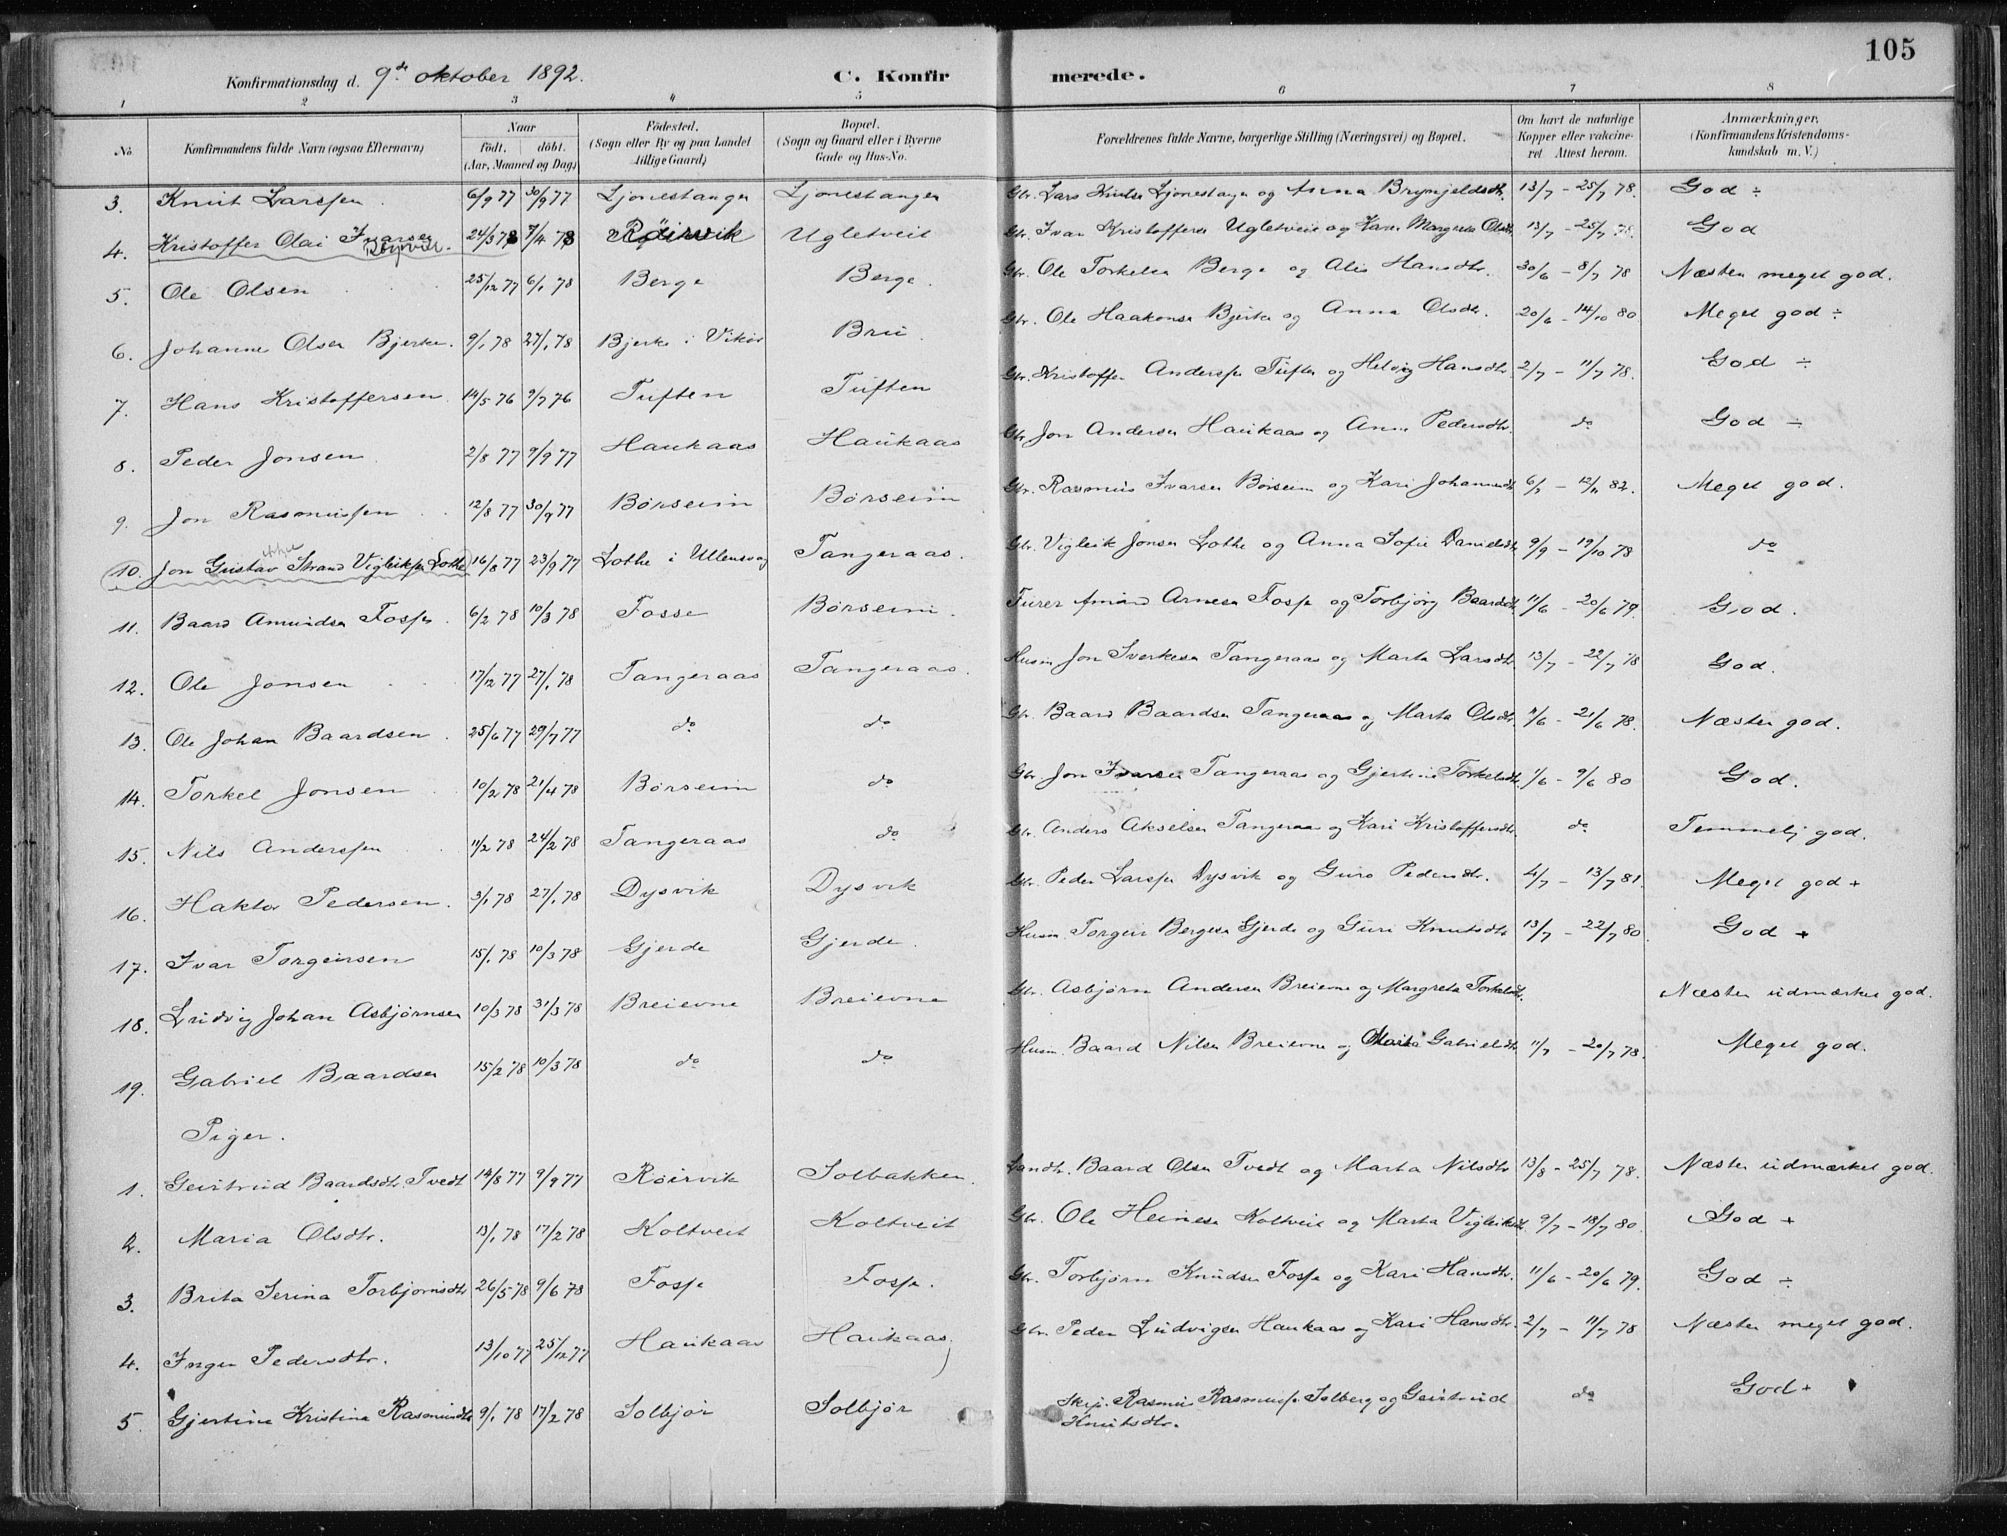 105
Konfirmationsdag d. 9de oktober 1892. C. Konfirmerede.
1 2 3 4 5 6 7 8
No. Konfirmandens fulde Navn (ogsaa Efternavn) Naar födt. döbt. (Aar, Maaned og Dag) Födested. (Sogn eller By og paa Landet tillige Gaard) Bopæl. (Sogn og Gaard eller i Byerne Gade og Hus-No. Forældrenes fulde Navne, borgerlige Stilling (Næringsvei) og Bopæl. Om havt de naturlige Kopper eller vaccineret Attest herom. Anmærkninger. (Konfirmandens Kristendomskundskab m. V.)
3. Knut Larssen 6/9 77 30/9 77 Ljonestangen Ljonestangen Gbr. Lars Knutsen Ljonestangen og Anna Brynjelsdtr. 13/7 - 25/7 78. God ÷
4. Kristoffer Olai Ivarsen 24/3 78 7/4 78 Röirvik Ugletveit Gbr. Ivar Kristoffersen Ugletveit og Karen Margreta Olsdtr 13/7 - 25/7 78. God
5. Ole Olsen 25/12 77 6/1 78 Berge Berge. Gbr. Ole Torkelsen Berge og Alis Hansdtr. 30/6 - 8/7 78 Næsten meget god.
6. Johanne Olsen Bjerke. 9/1 78 27/1 78 Bjerke i Vikör Bru Gbr. Ole Haakonsen Bjerke og Anna Olsdtr. 20/6 - 14/10 80 Meget god ÷
7. Hans Kristoffersen 14/5 76 9/7 76 Tuften Tuften Gbr. Kristoffer Anderssen Tuften og Helvig Hansdtr. 2/7 - 11/7 78. God ÷
8. Peder Jonsen 2/8 77 9/9 77 Haukaas Haukaas Gbr. Jon Andersen Haukaas og Anna Pedersdtr. do God ÷
9. Jon Rasmussen 12/8 77 30/9 77 Börseim Börseim Gbr. Rasmus Ivarsen Börseim og Kari Johannesdtr 82. Meget god.
10. Jon Gustav Strand Vigleiksen Lothe 16/8 77 23/9 77 Lothe i Ullensvag Tangeraas. Gbr. Vigleik Jonsen Lothe og Anna Sofie Danielsdtr 9/9 - 19/10 78 do
11. Baard Amundsen Fosse 6/2 78 10/3 78 Fosse Börseim. Furer Amund Arnesen Fosse og Torbjörg Baardsdtr 11/6 - 20/6 79. God.
12. Ole Jonsen 17/12 77 27/1 78 Tangeraas Tangeraas. Husm. Jon Sverkesen Tangeraas og Marta Larsdtr. 13/7 - 22/7 78 God.
13. Ole Johan Baardsen 25/6 77 29/7 77 do do Gbr. Baard Baardsen Tangeraas og Marta Olsdtr. 11/6 - 21/6 78. Næsten god.
14. Torkel Jonsen 10/2 78 21/4 78 Börseim do Gbr. Jon Ivarsen Tangeraas og Gjertine Torkelsdtr. 1/6 - 9/6 80 God.
15. Nils Anderssen 11/2 78 24/2 78 Tangeraas do Gbr. Anders Akselsen Tangeraas og Kari Kristoffersdtr. do Temmelig god.
16. Haktor Pedersen. 3/1 78 27/1 78 Dysvik Dysvik Gbr. Peder Larssen Dysvik og Guro Pedersdtr. 4/7 - 13/7 81. Meget god +
17. Ivar Torgeirsen 15/1 78 10/3 78 Gjerde Gjerde. Husm. Torgeir Bergesen Gjerde og Guri Knutsdtr 13/7 - 22/7 80. God +
18. Ludvig Johan Asbjörnsen 10/3 78 31/3 78 Breievne Breievne Gbr. Asbjörn Andersen Breievne og Margreta Torkelsdtr. Næsten udmærket god.
19. Gabriel Baardsen 15/2 78 10/3 78 do do Husm. Baard Nilsen Breievne og Gabrielsdtr 11/7 - 20/7 78. Meget god.
Piger.
1. Geirtrud Baardsdtr. Tvedt 14/8 77 9/9 77 Röirvik Solbakken. Landh. Baard Olsen Tvedt og Marta Nilsdtr 13/8 - 25/7 78. Næsten udmærket god.
2. Maria Olsdtr. 13/1 78 17/2 78 Koltveit Koltveit Gbr. Ole Heinesen Koltveit og Marta Vigleiksdtr 9/7 - 18/7 80. God +
3. Brita Serina Torbjörnsdtr 26/5 78 9/6 78 Fosse Fosse. Gbr. Torbjörn Knudsen Fosse og Kari Hansdtr. 11/6 - 20/6 79. God ÷
4. Inger Pedersdtr. 13/10 77 25/12 77 Haukaas Haukaas Gbr. Peder Ludvigsen Haukaas og Kari Hansdtr. 2/7 - 11/7 78 Næsten meget god.
5 Gjertine Kristine Rasmusdtr 9/1 78 17/2 78 Solbjör Solbjör Skip. Rasmus Rasmussen Solberg og Geirtrud Knutsdtr. do God +